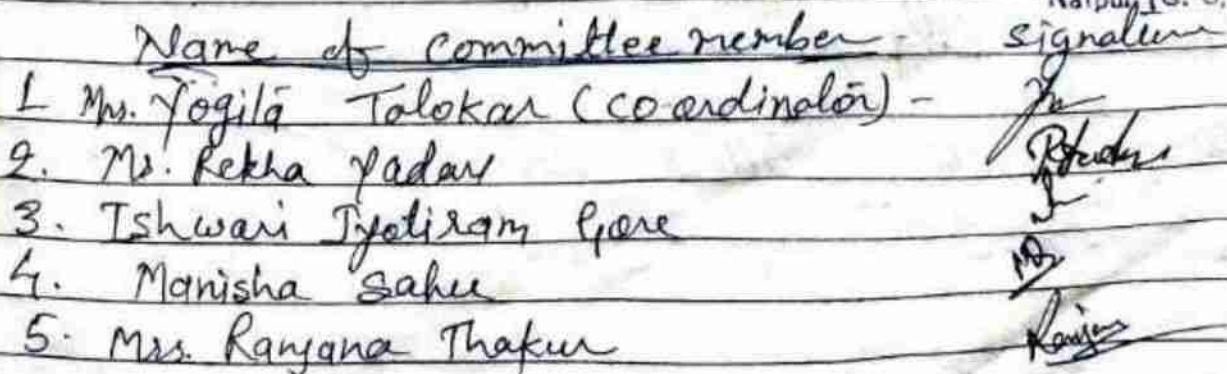 Name of committee member - signature
1 Mrs. Yogita Talokar (co-ordinator) -
2. Ms. Rekha Yadav
3. Ishwari Jyotiram Gore
4. Manisha Sahu
5. Mrs. Ranjana Thakur